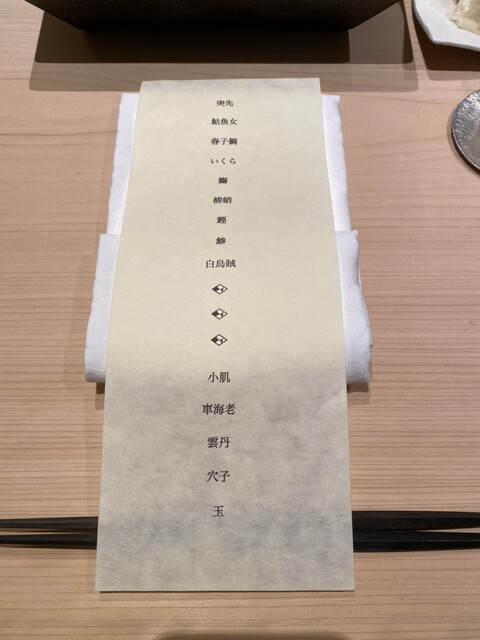 突先
鮎魚女
春子鯛
いくら
柳蛸
鰹
鯵
白烏賊
小肌
車海老
雲丹
穴子
玉